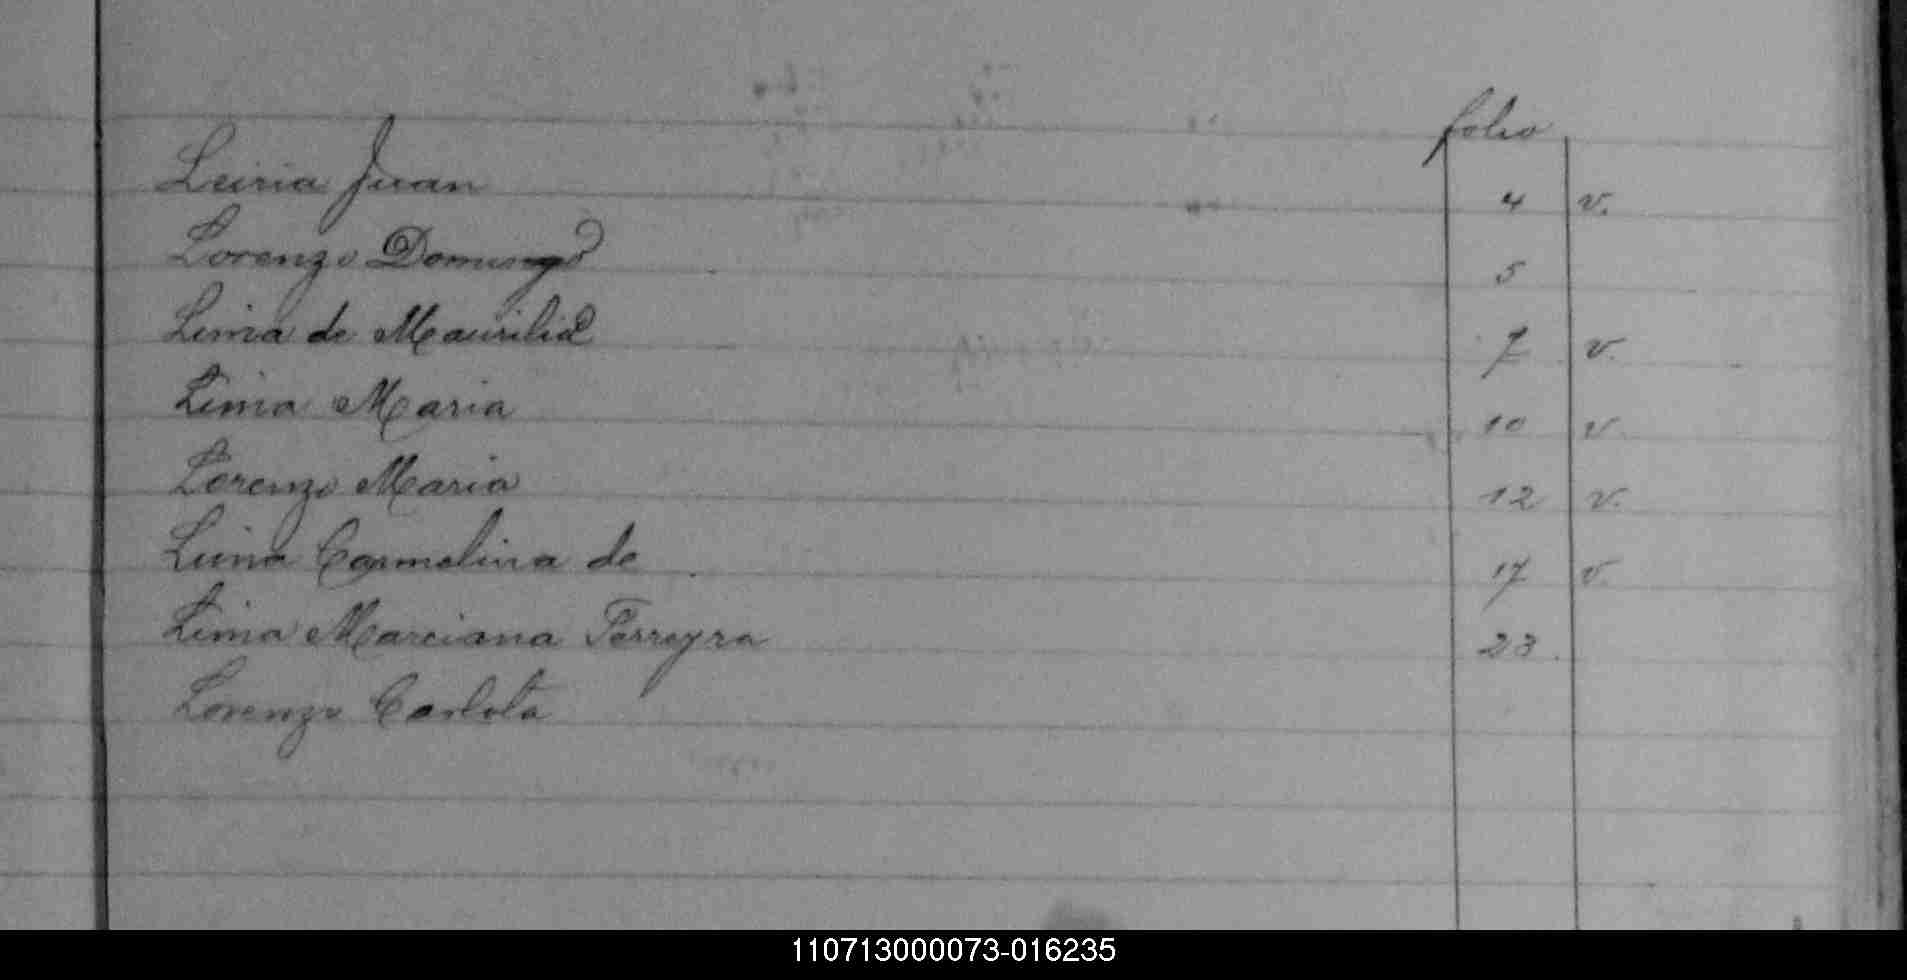 folio
Leiria Juan 4 v.
Lorenzo Domingo 5
Lima de Maurilia 7 v.
Lima Maria 10 v.
Lorenzo Maria 12 v.
Lima Carmelina de 17 v.
Lima Marciana Ferreyra 23
Lorenzo Carlota
110713000073-016235